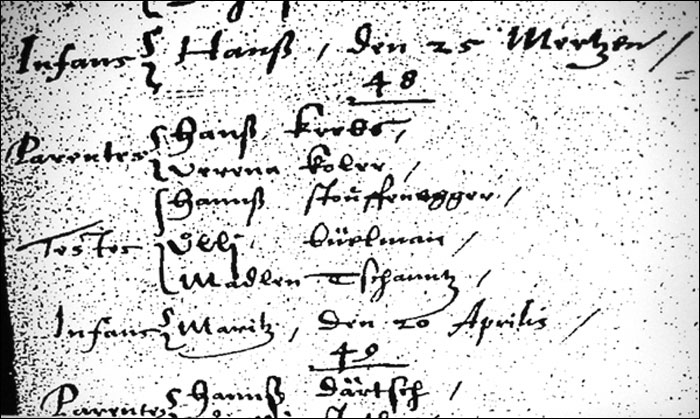 Infans { Hanß, den 25 Mertzen /
48
Parentes { Hanß Krebs,
Verena Koler, /
{ Hannß Stouffenegger, /
Testes Ülli büelman /
Madlen Tschanntz /
Infans { Maritz, den 20 Aprilis /
49
Parentes { Hannß Därtsch /